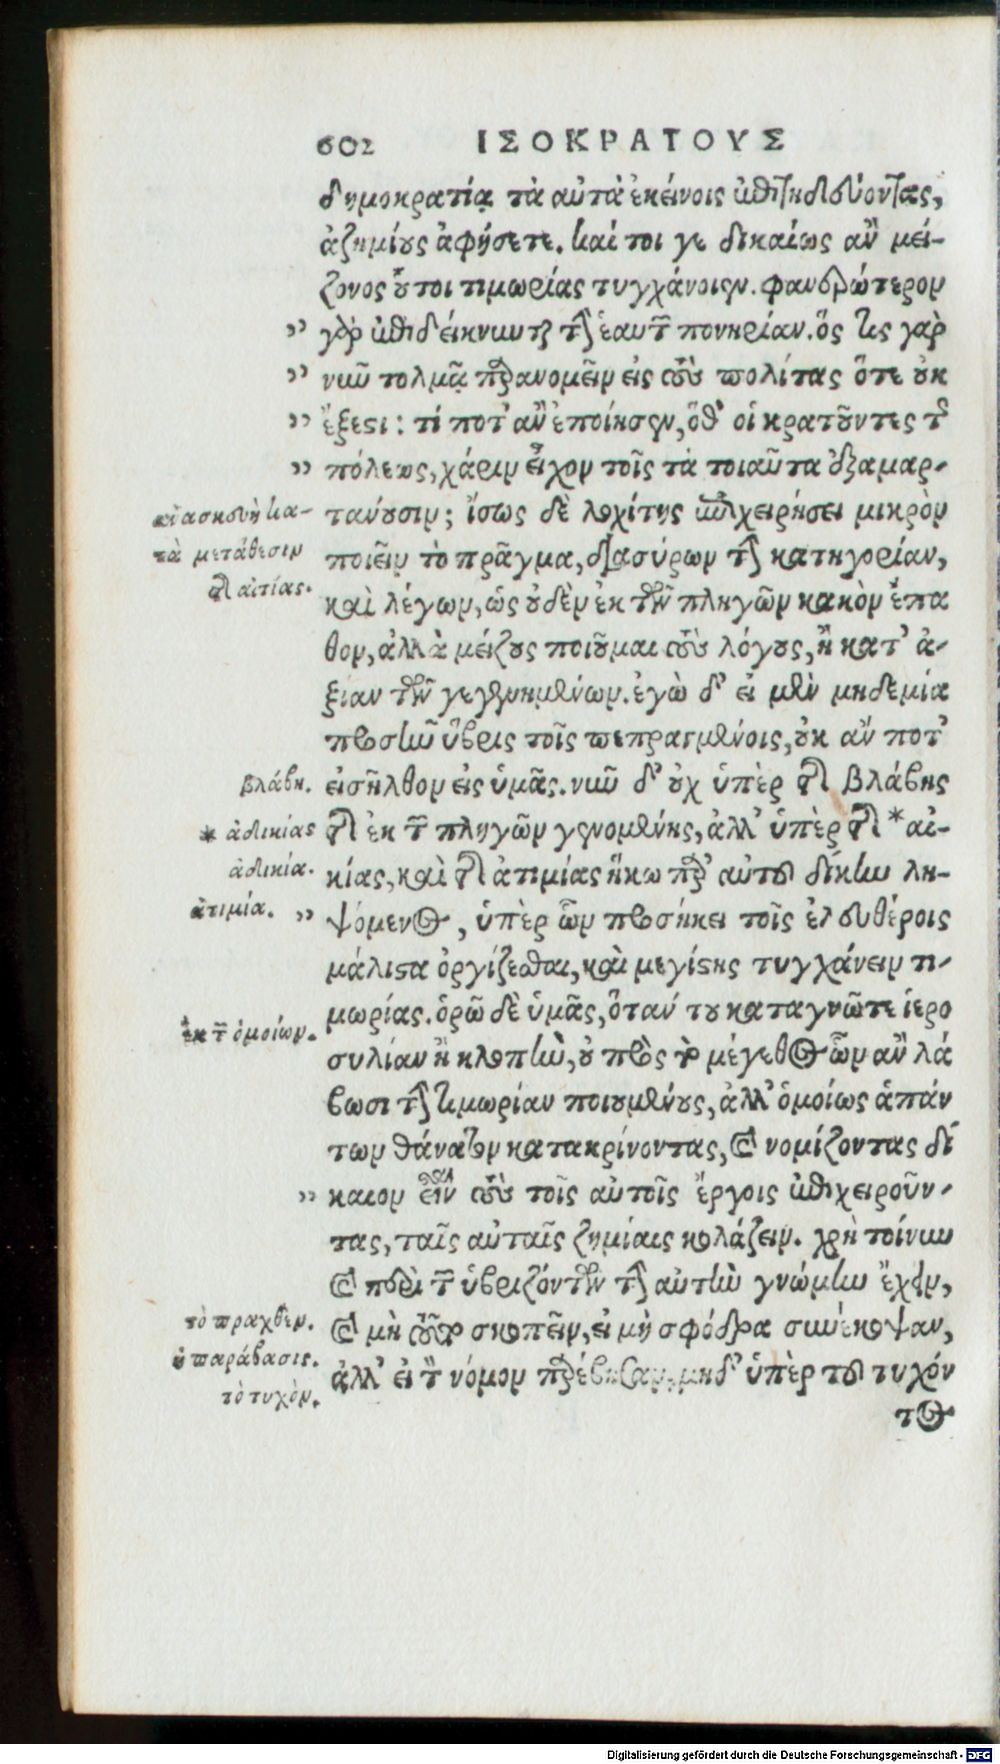 602 ΙΣΟΚΡΑΤΟΥΣ
δημοκρατίᾳ τὰ αὐτὰ ἐκείνοις ἐπιτηδεύοντας,
ἀζημίους ἀφήσετε. καί τοι γε δικαίως ἂν μεί-
ζονος οὗτοι τιμωρίας τυγχάνοιεν. φανερώτερον
" γὰρ ἐπιδείκνυνται τὴν ἑαυτῶν πονηρίαν. ὅς τις γὰρ
" νῦν τολμᾷ παρανομεῖν εἰς τοὺς πολίτας ὅτε οὐκ
" ἔξεστι: τί ποτ' ἂν ἐποίησεν, ὅθ' οἱ κρατοῦντες τῆς
" πόλεως, χάριν εἶχον τοῖς τὰ τοιαῦτα ἐξαμαρ-
τανούσιν; ἴσως δὲ λοχίτης ἐπιχειρήσει μικρὸν
ποιεῖν τὸ πρᾶγμα, διασύρων τὴν κατηγορίαν,
καὶ λέγων, ὡς οὐδὲν ἐκ τῶν πληγῶν κακὸν ἔπα
θον, ἀλλὰ μείζους ποιοῦμαι τοὺς λόγους, ἢ κατ' ἀ-
ξίαν τῶν γεγενημένων. ἐγὼ δ' εἰ μὲν μηδεμία
προσῆν ὕβρις τοῖς πεπραγμένοις, οὐκ ἄν ποτ'
εἰσῆλθον εἰς ὑμᾶς. νῦν δ' οὐχ ὑπὲρ τῆς βλάβης
τῆς ἐκ τῶν πληγῶν γενομένης, ἀλλ' ὑπὲρ τῆς *αἰ-
κίας, καὶ τῆς ἀτιμίας ἥκω παρ' αὐτοῦ δίκην λη-
" ψόμενος, ὑπὲρ ὧν προσήκει τοῖς ἐλευθέροις
μάλιστα ὀργίζεσθαι, καὶ μεγίστης τυγχάνειν τι-
μωρίας. ὁρῶ δὲ ὑμᾶς, ὅταν του καταγνῶτε ἱερο
συλίαν ἢ κλοπὴν, οὐ πρὸς τὸ μέγεθος ὧν ἂν λά
βωσι τὴν τιμωρίαν ποιουμένους, ἀλλ' ὁμοίως ἁπάν
των θάνατον κατακρίνοντας, καὶ νομίζοντας δί
" καιον εἶναι τοὺς τοῖς αὐτοῖς ἔργοις ἐπιχειροῦν-
τας, ταῖς αὐταῖς ζημίαις κολάζειν. χρὴ τοίνυν
καὶ περὶ τῶν ὑβριζόντων τὴν αὐτὴν γνώμην ἔχειν,
καὶ μὴ τοῦτο σκοπεῖν, εἰ μὴ σφόδρα συνέκοψαν,
ἀλλ' εἰ τὸν νόμον παρέβησαν, μηδ' ὑπὲρ τοῦ τυχόν
τος
ἀνασκευὴ κα-
τὰ μετάθεσιν
τῆς αἰτίας.
βλάβη.
* ἀδικίας
ἀδικία.
ἀτιμία.
ἐκ τῶν ὁμοίων.
τὸ πραχθὲν.
ἡ παράβασις.
τὸ τυχὸν.
Digitalisierung gefördert durch die Deutsche Forschungsgemeinschaft - DFG